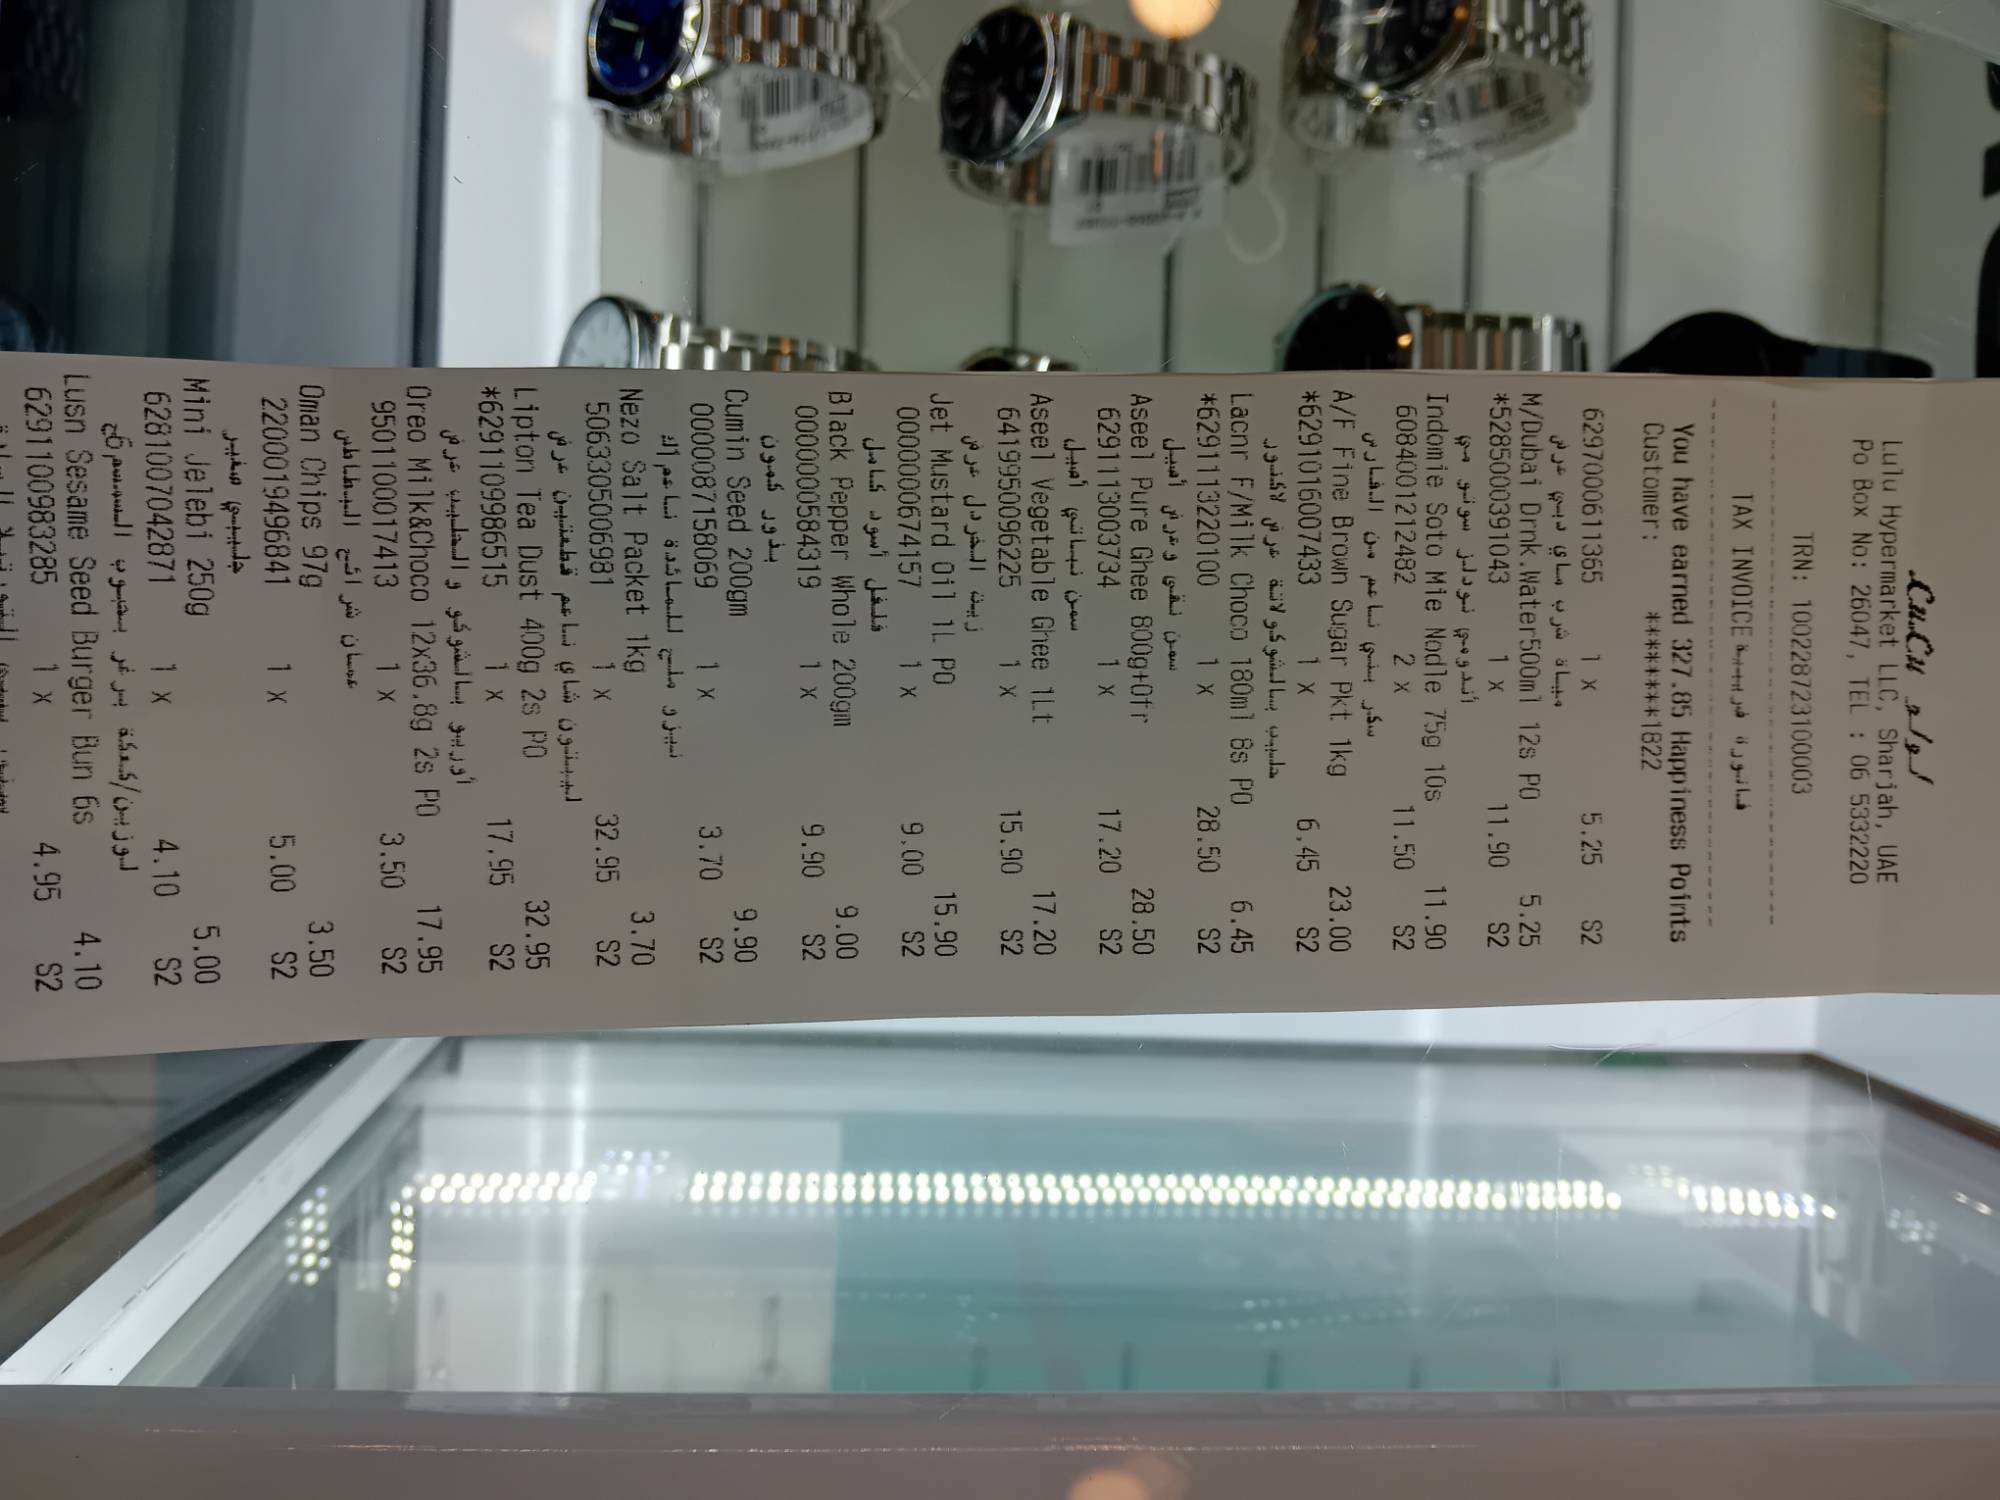 LuLu لولو
Lulu Hypermarket LLC, Sharjah, UAE
Po Box No: 26047, TEL : 06 5332220
TRN: 100228723100003
TAX INVOICE فاتورة ضريبية
You have earned 327.85 Happiness Points
Customer: *******1822
6297000611365 1 x 5.25 S2
مياة شرب ماي دبي عرض
M/Dubai Drnk.Water500ml 12s PO 5.25
*5285000391043 1 x 11.90 S2
أندومي نودلز سوتو مي
Indomie Soto Mie Nodle 75g 10s 11.90
6084001212482 2 x 11.50 S2
سكر بني ناعم من الفارس
A/F Fine Brown Sugar Pkt 1kg 23.00
*6291016007433 1 x 6.45 S2
حليب بالشوكولاتة عرض لاكنور
Lacnr F/Milk Choco 180ml 8s PO 6.45
*6291113220100 1 x 28.50 S2
سمن نقي وعرض أصيل
Aseel Pure Ghee 800g+Ofr 28.50
6291113003734 1 x 17.20 S2
سمن نباتي أصيل
Aseel Vegetable Ghee 1Lt 17.20
6419950096225 1 x 15.90 S2
زيت الخردل عرض
Jet Mustard Oil 1L PO 15.90
0000000674157 1 x 9.00 S2
فلفل أسود كامل
Black Pepper Whole 200gm 9.00
0000000584319 1 x 9.90 S2
بذور كمون
Cumin Seed 200gm 9.90
0000087158069 1 x 3.70 S2
نيزو ملح للمائدة ناعم أك
Nezo Salt Packet 1kg 3.70
5063305006981 1 x 32.95 S2
ليبتون شاي ناعم قطعتين عرض
Lipton Tea Dust 400g 2s PO 32.95
*6291109986515 1 x 17.95 S2
أوريو بالشوكو و الحليب عرض
Oreo Milk&Choco 12x36.8g 2s PO 17.95
9501100017413 1 x 3.50 S2
عمان شرائح البطاطس
Oman Chips 97g 3.50
2200019496841 1 x 5.00 S2
جليبي صغير
Mini Jelebi 250g 5.00
6281007042871 1 x 4.10 S2
لوزين/كعكة برغر بحبوب السمسم
Lusn Sesame Seed Burger Bun 6s 4.10
6291100983285 1 x 4.95 S2